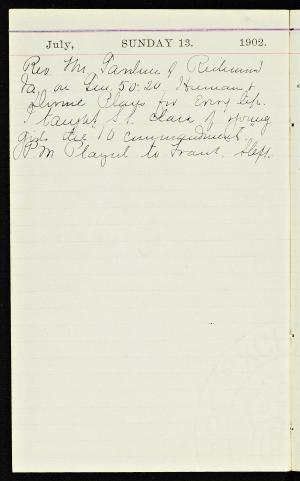 July, SUNDAY 13. 1902.
Rev. Mr. of Richmond
Va, on Gen, 50-20, Human &
Divine Plans for Every Life.
I taught S.S. class of young
girls the 10 commandments.
P.M. Played to Grant. Slept.